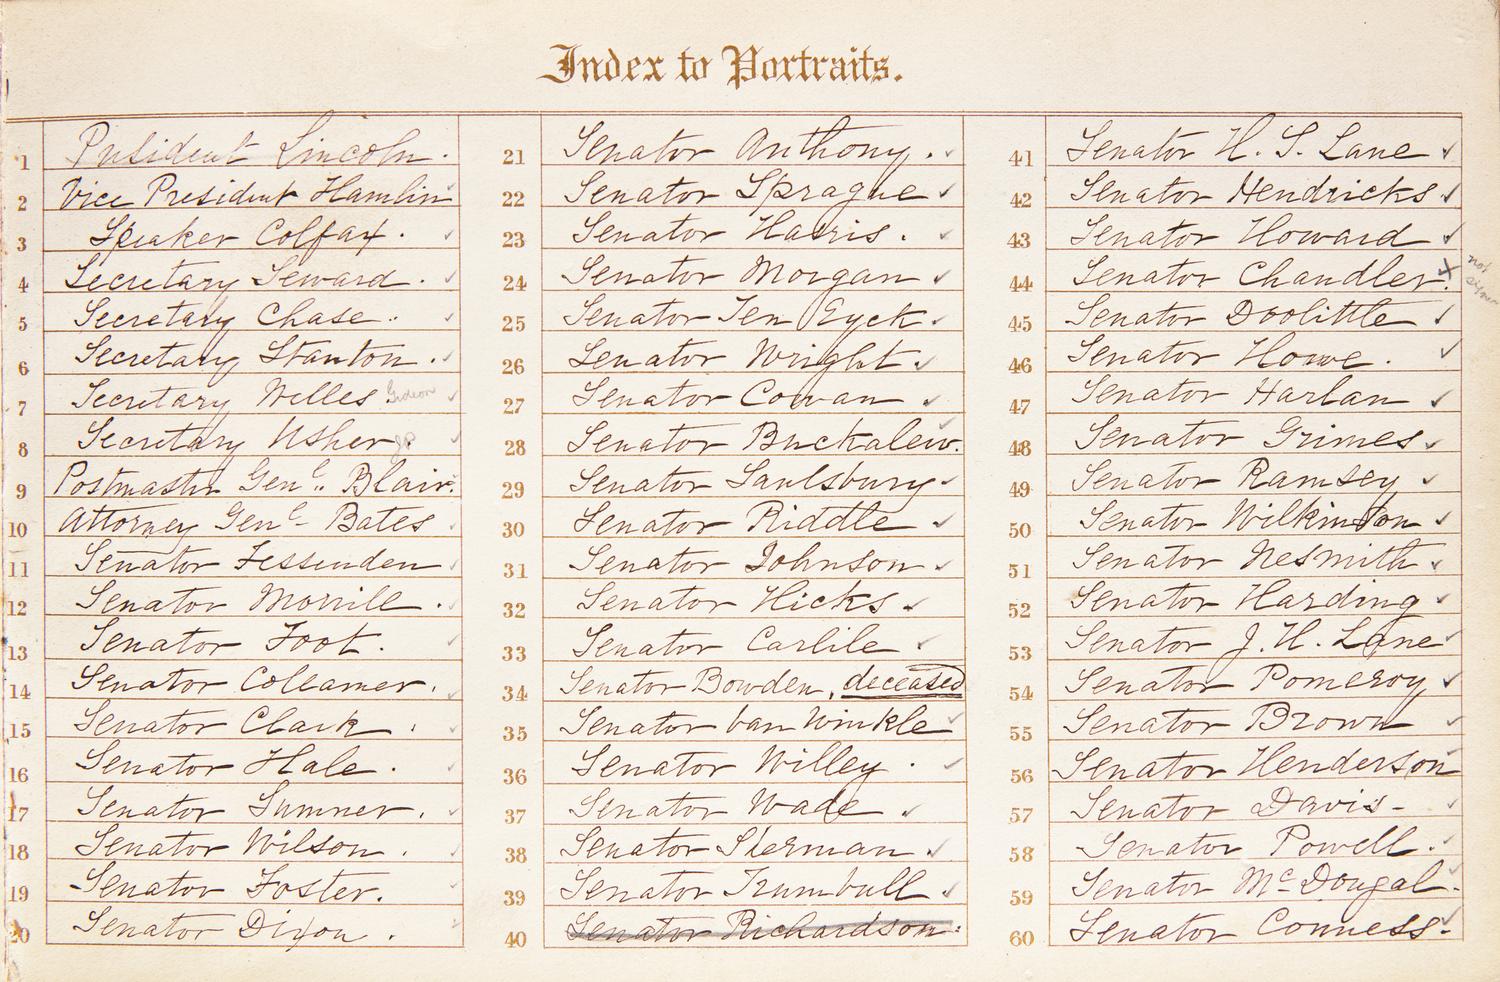 Index to Portraits.
1 President Lincoln.
2 Vice President Hamlin
3 Speaker Colfax.
4 Secretary Seward.
5 Secretary Chase.
6 Secretary Stanton.
7 Secretary Welles. Gideon
8 Secretary Usher. JP
9 Postmaster Genl. Blair.
10 Attorney Genl- Bates
11 Senator Fessenden
12 Senator Morrill.
13 Senator Foot.
14 Senator Coleamer.
15 Senator Clark.
16 Senator Hale.
17 Senator Sumner.
18 Senator Wilson.
19 Senator Foster.
20 Senator Dixon.
21 Senator Anthony.
22 Senator Sprague
23 Senator Harris.
24 Senator Morgan
25 Senator Ten Eyck
26 Senator Wright.
27 Senator Cowan
28 Senator Buckalew.
29 Senator Saulsbury
30 Senator Riddle
31 Senator Johnson
32 Senator Hicks
33 Senator Carlile
34 Senator Bowden, deceased
35 Senator Van Winkle
36 Senator Willey.
37 Senator Wade
38 Senator Sherman
39 Senator Trumbull
40 Senator Richardson.
41 Senator H. S. Lane
42 Senator Hendricks.
43 Senator Howard
44 Senator Chandler. not
45 Senator Doolittle
46 Senator Howe.
47 Senator Harlan
48 Senator Grimes
49 Senator Ramsey
50 Senator Wilkinson
51 Senator Nesmith
52 Senator Harding
53 Senator J. H. Lane
54 Senator Pomeroy
55 Senator Brown
56 Senator Henderson
57 Senator Davis-
58 Senator Powell.
59 Senator McDougal.
60 Senator Conness.